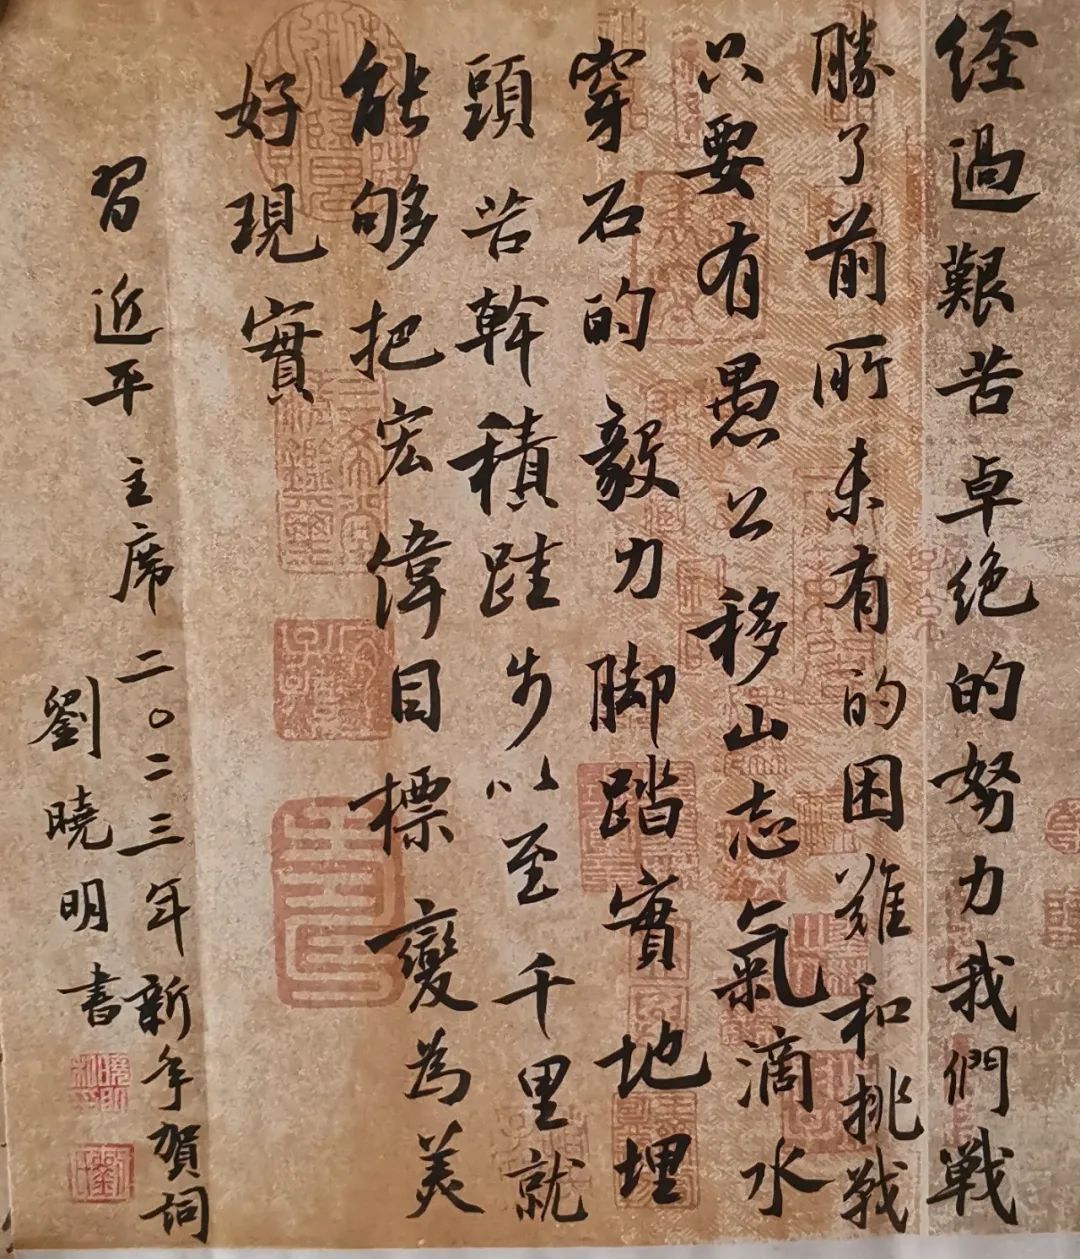 经過艱苦卓绝的努力我們戰
勝了前所未有的困難和挑戰
只要有愚公移山志氣滴水
穿石的毅力脚踏實地埋
頭苦幹積跬步以至千里就
能够把宏偉目標變為美
好現實
習近平主席二〇二三年新年賀詞
劉曉明書